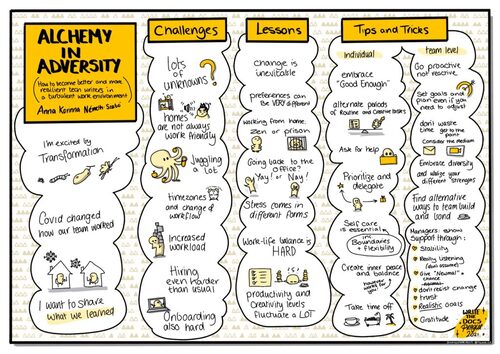 ALCHEMY
IN
ADVERSITY
How to become better and more
resilient tech writers in
a turbulent work environment
Anna Korinna Németh-Szabó
I'm excited by
Transformation
Covid changed
how our team worked
I want to share
what we learned
Challenges
Lots
of
unknowns
?
homes
are not always
work friendly
Juggling
a lot
timezones
and change of
workflow
Increased
workload
Hiring
even harder
than usual
Onboarding
also hard
Lessons
change is
inevitable
preferences can
be VERY different
working from home
zen or prison
Going back to the
office?
Yay! or Nay!
Stress comes in
different forms
Work-life balance is
HARD
productivity and
creativity levels
fluctuate a LOT
Tips and Tricks
Individual
embrace
"Good Enough"
alternate periods
of Routine and Creative tasks
Ask for help
Prioritize and
delegate
Self care
is essential
inc.
Boundaries
+ flexibility
Create inner peace
and balance
works for
you!
Take time off
team level
Go proactive
not reactive
Set goals and
plan even if you
need to adjust
don't waste
time get to the
point
Consider the medium
Embrace diversity
and utilize your
different strengths
Find alternative
ways to team build
and bond
Managers: show
support through:
Stability
Really listening
(don't assume)
Give "Normal" a
chance
don't resist change
trust
Realistic goals
Gratitude
WRITE
THE
DOCS